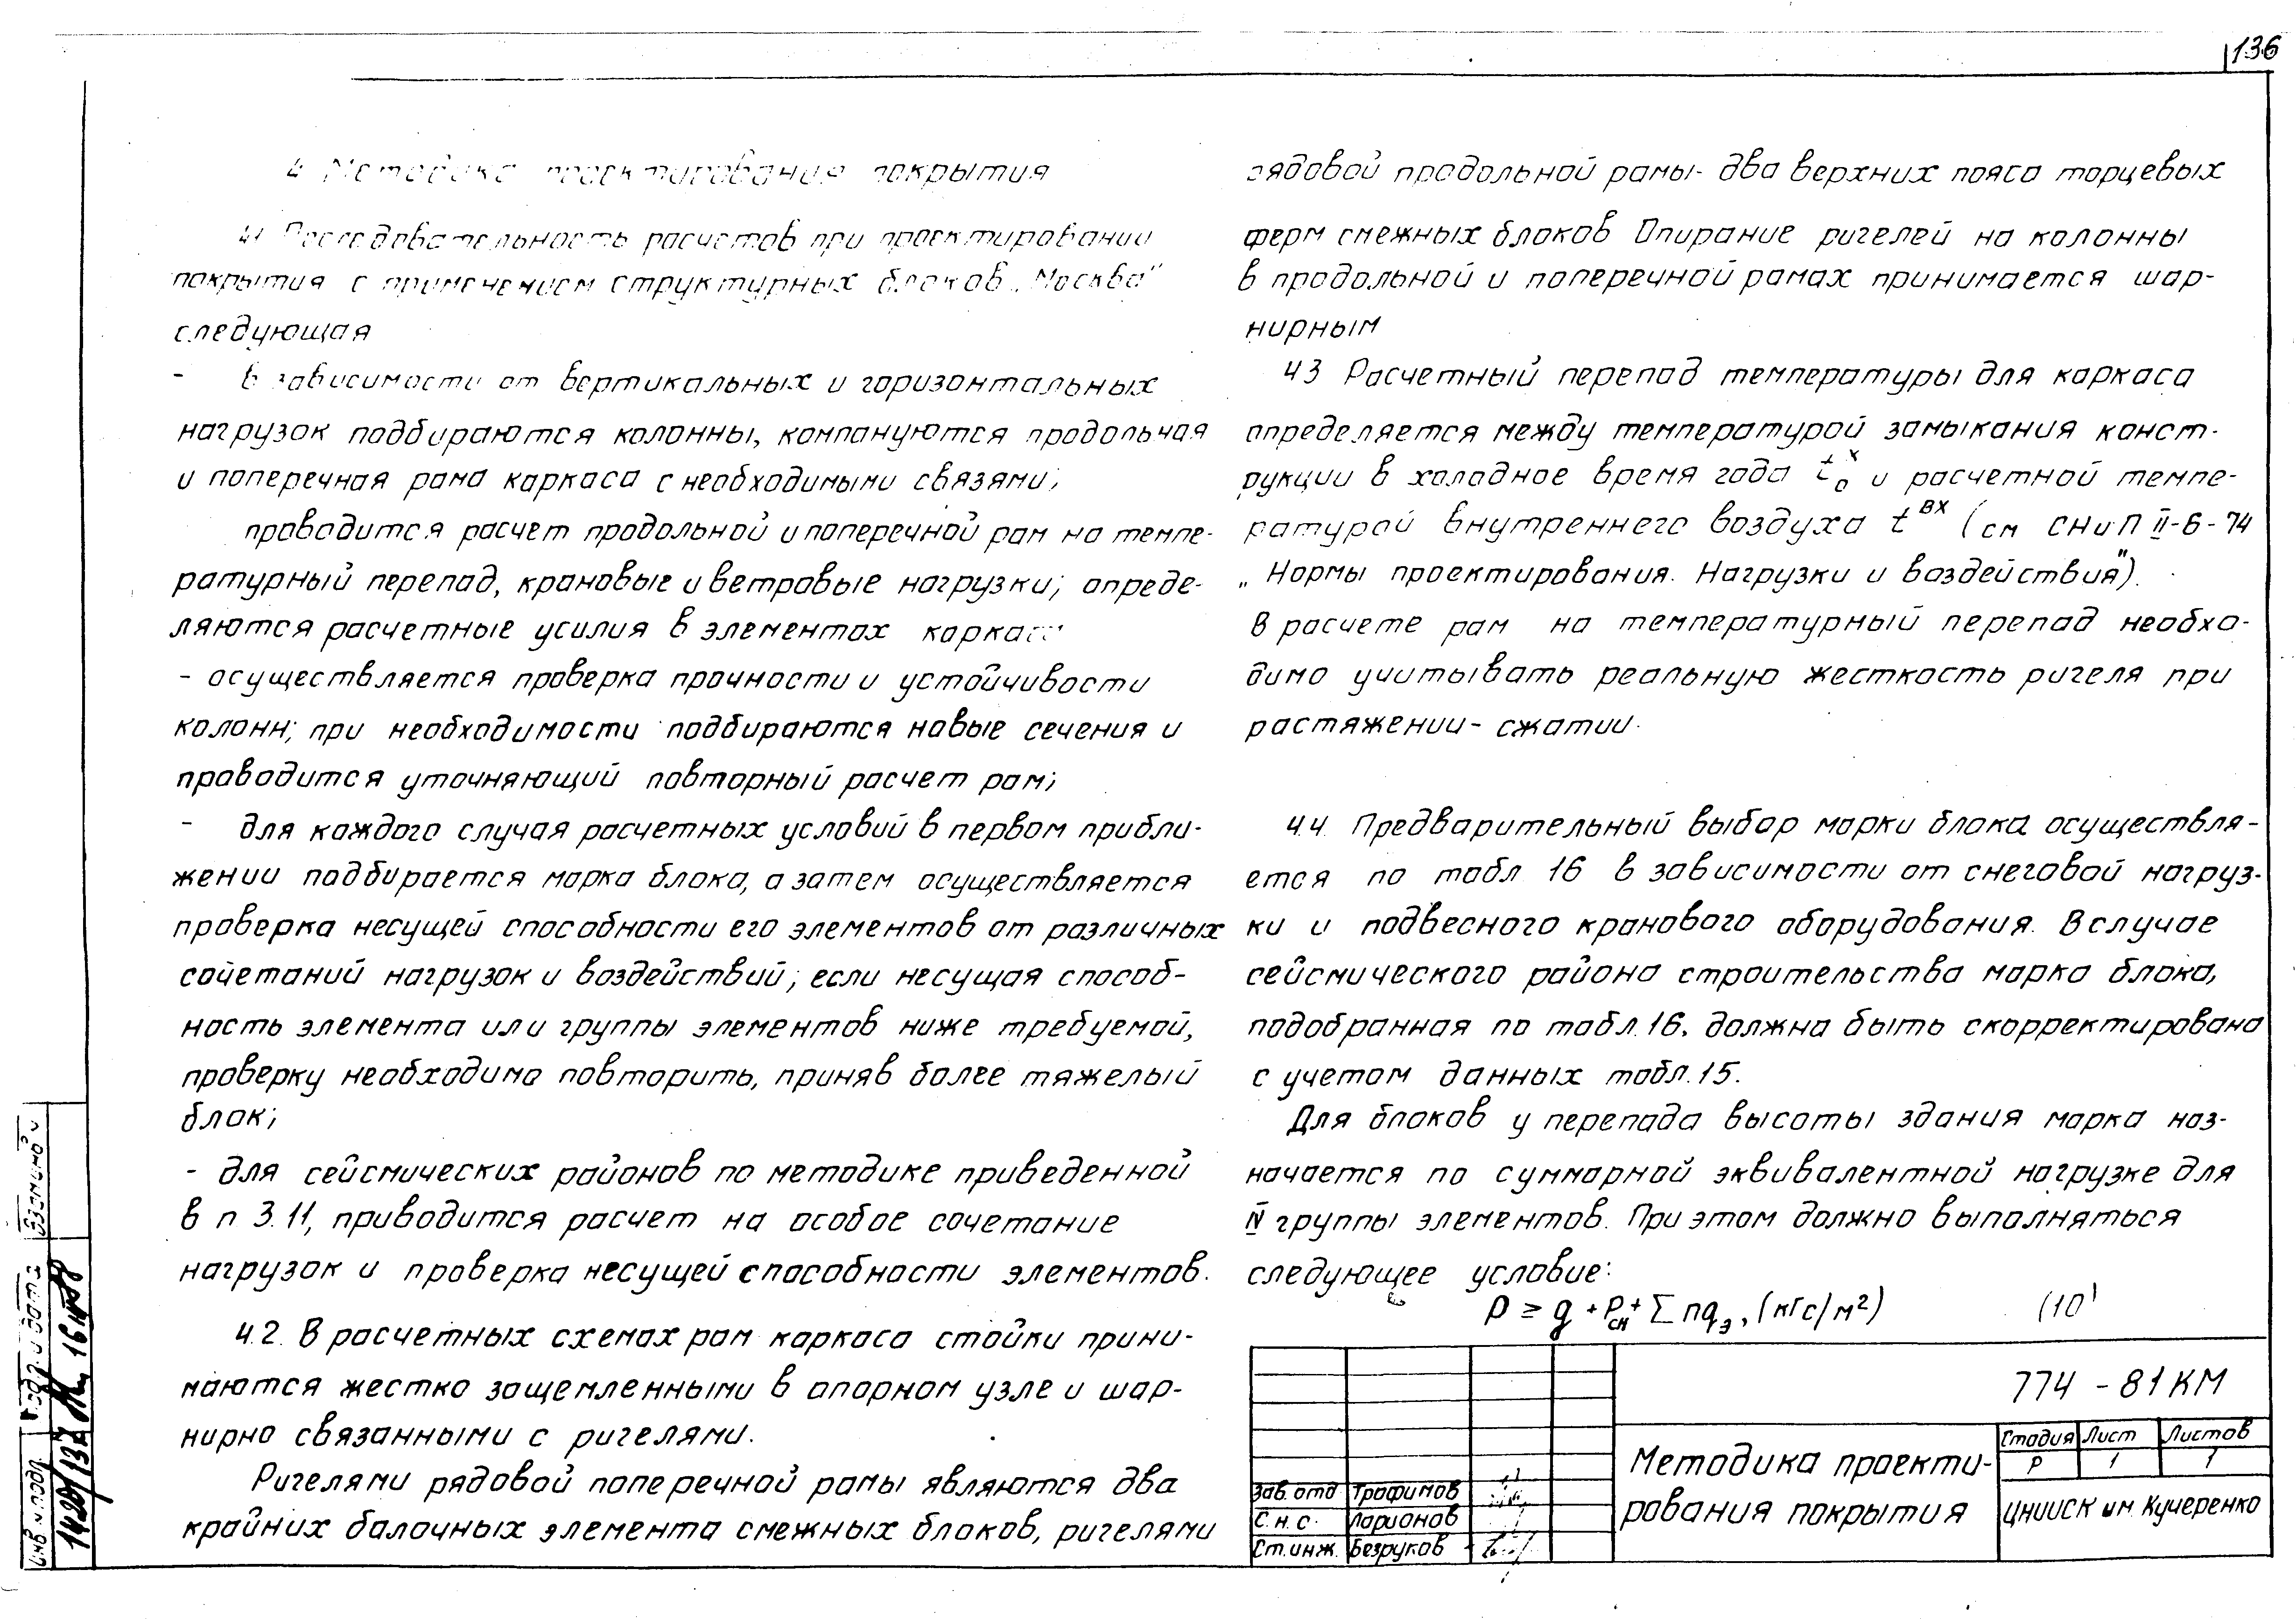 136
4 Методика проектирования покрытия
4.1 Последовательность расчетов при проектировании
покрытия с применением структурных блоков „Москва"
следующая
- в зависимости от вертикальных и горизонтальных
нагрузок подбираются колонны, компануются продольная
и поперечная рама каркаса с необходимыми связями;
проводится расчет продольной и поперечной рам на темпе-
ратурный перепад, крановые и ветровые нагрузки; опреде-
ляются расчетные усилия в элементах каркаса
- осуществляется проверка прочности и устойчивости
колонн; при необходимости подбираются новые сечения и
проводится уточняющий повторный расчет рам;
- для каждого случая расчетных условий в первом прибли-
жении подбирается марка блока, а затем осуществляется
проверка несущей способности его элементов от различных
сочетаний нагрузок и воздействий; если несущая способ-
ность элемента или группы элементов ниже требуемой,
проверку необходимо повторить, приняв более тяжелый
блок;
- для сейсмических районов по методике приведенной
в п 3.11, приводится расчет на особое сочетание
нагрузок и проверка несущей способности элементов.
4.2. В расчетных схемах рам каркаса стойки прини-
маются жестко защемленными в опорном узле и шар-
нирно связанными с ригелями.
Ригелями рядовой поперечной рамы являются два
крайних балочных элемента смежных блоков, ригелями
рядовой продольной рамы- два верхних пояса торцевых
ферм смежных блоков Опирание ригелей на колонны
в продольной и поперечной рамах принимается шар-
нирным
4.3 Расчетный перепад температуры для каркаса
определяется между температурой замыкания конст-
рукции в холодное время года t₀ˣ и расчетной темпе-
ратурой внутреннего воздуха tᵇˣ (см СНиП II-6-74
„Нормы проектирования. Нагрузки и воздействия").
В расчете рам на температурный перепад необхо-
димо учитывать реальную жесткость ригеля при
растяжении-сжатии.
4.4. Предварительный выбор марки блока осуществля-
ется по табл 16 в зависимости от снеговой нагруз-
ки и подвесного кранового оборудования. В случае
сейсмического района строительства марка блока,
подобранная по табл.16, должна быть скорректирована
с учетом данных табл.15.
Для блоков у перепада высоты здания марка наз-
начается по суммарной эквивалентной нагрузке для
IV группы элементов. При этом должно выполняться
следующее условие:
P ≥ g + Pсн + Σ nqэ, (кгс/м²) (10)
774 - 81 КМ
Методика проекти-
рования покрытия
Стадия Лист Листов
Р 1 1
ЦНИИСК им. Кучеренко
Зав. отд Трофимов
С.н.с. Ларионов
Ст.инж. Безруков
Взам инв и
Подп. и дата
Инв и подл.